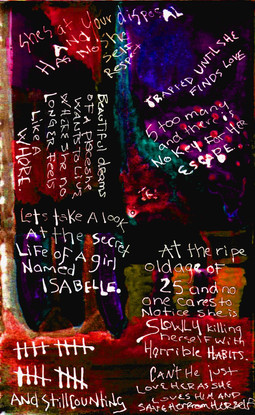 She's at your disposal
HAS No She
No Self
Respect
TRAPPED UNTIL SHE
FINDS LOVE
Beautiful dreams
of a place she
WANTS to LIVE
WHERE she no
LONGER feels
LIKE A
WHORE
5 too many
and there is
No Key FOR HER
ESCAPE.
Lets take A look
At the secret
Life of A girl
Named
ISABELLE.
At the ripe
old age of
25 and no
one cares to
Notice she is
SLOWLY killing
herself with
Horrible HABITS.
CAN'T He just
LOVE HER AS SHE
LOVES HIM AND
SAVE HER FROM HERSELF
AND Still COUNTING